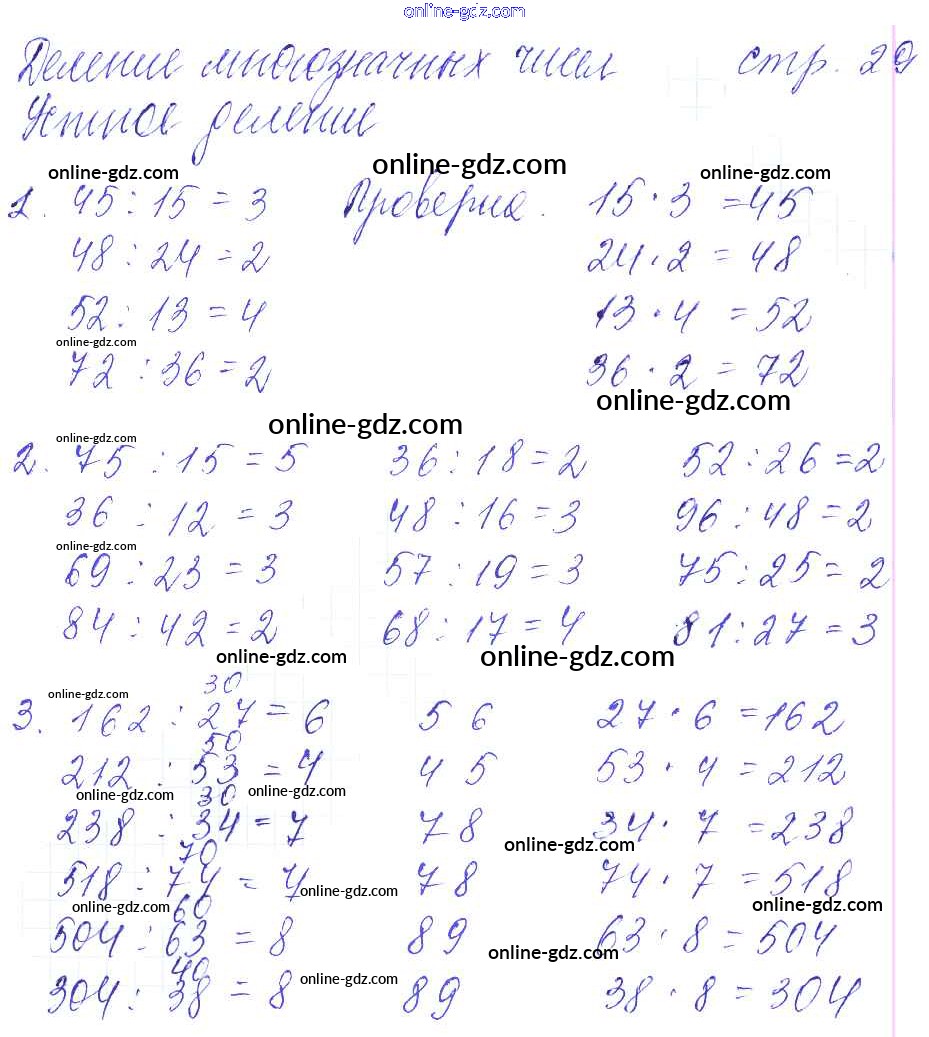 online-gdz.com
Деление многозначных чисел стр. 29
Устное деление
online-gdz.com online-gdz.com online-gdz.com
1. 45 : 15 = 3 Проверка. 15 · 3 = 45
48 : 24 = 2 24 · 2 = 48
52 : 13 = 4 13 · 4 = 52
online-gdz.com
72 : 36 = 2 36 · 2 = 72
online-gdz.com
online-gdz.com
online-gdz.com
2. 75 : 15 = 5 36 : 18 = 2 52 : 26 = 2
36 : 12 = 3 48 : 16 = 3 96 : 48 = 2
online-gdz.com
69 : 23 = 3 57 : 19 = 3 75 : 25 = 2
84 : 42 = 2 68 : 17 = 4 81 : 27 = 3
online-gdz.com online-gdz.com
30
online-gdz.com
3. 162 : 27 = 6 5 6 27 · 6 = 162
50
212 : 53 = 4 4 5 53 · 4 = 212
online-gdz.com 30 online-gdz.com
238 : 34 = 7 7 8 34 · 7 = 238
online-gdz.com
70
518 : 74 = 7 online-gdz.com 7 8 74 · 7 = 518
online-gdz.com 60 online-gdz.com
504 : 63 = 8 8 9 63 · 8 = 504
online-gdz.com
40 online-gdz.com
304 : 38 = 8 8 9 38 · 8 = 304